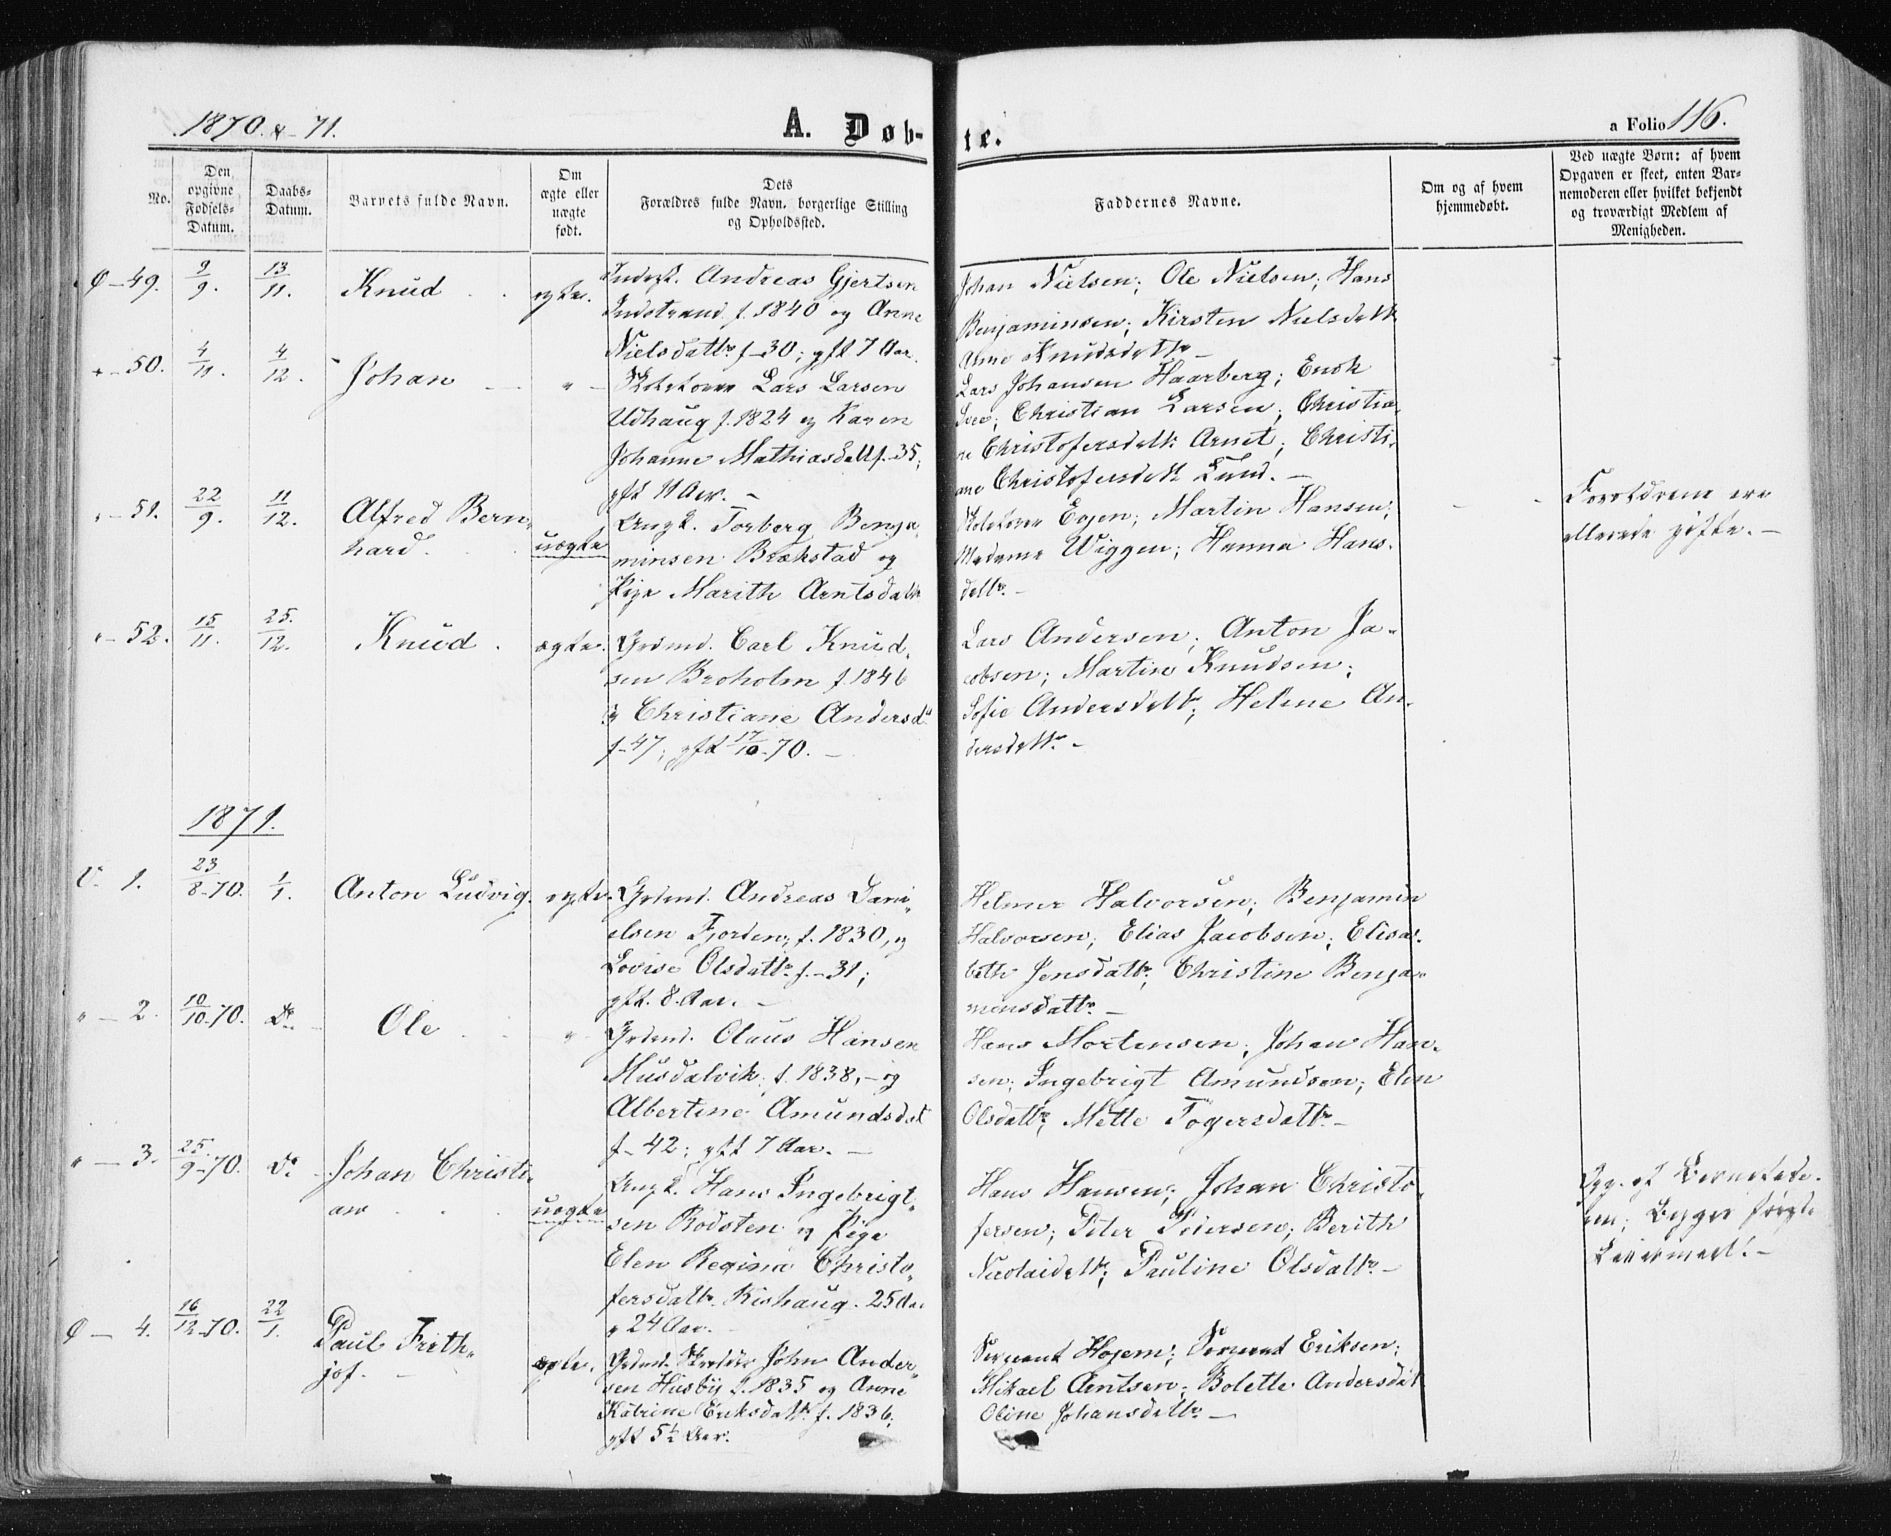 1870 & 71.
A. Døb-te.
a Folio 116.
No.
Den opgivne Fødsels-Datum.
Daabs-Datum.
Barnets fulde Navn.
Om ægte eller uægte født.
Dets Forældres fulde Navn, borgerlige Stilling og Opholdssted.
Faddernes Navne.
Om og af hvem hjemmedøbt.
Ved uægte Børn: af hvem Opgaven er skeet, enten Barnemoderen eller hvilket bekjendt og troværdigt Medlem af Menigheden.
Ø – 49. 9/9. 13/11. Knud ægte.
Inderst. Andreas Gjertsen
Indstrand f. 1840 og Anne
Nielsdattr f – 30; gft 7 Aar.
Johan Nielsen; Ole Nielsen; Hans
Benjaminsen; Kirsten Nielsdatt
Anne Knudsdattr –
" – 50. 4/11. 4/12. Johan "
Skolelærer Lars Larsen
Udhaug f. 1824 og Karen
Johanne Mathiasdatt f – 35;
gft 11 Aar. –
Lars Johansen Haarberg; Enok
Christian Larsen; Christia-
ne Christofersdatt Arnet; Christi-
ane Christofersdatt Lund. –
" – 51. 22/9. 11/12. Alfred Bern-
hard. uægte
Ungk. Torberg Benja-
minsen Brækstad og
Pige Marith Arntsdattr
Skolelærer Eojen; Martin Hansen;
Madame Wiggen; Hanna Hans-
dattr. –
Forældrene ere
allerede gifte. –
" – 52. 15/11. 25/12. Knud ægte.
Grdmd. Carl Knud-
sen Broholm f. 1846
og Christiane Andersd.
f – 47; gft 17/10 – 70. –
Lars Andersen; Anton Ja-
cobsen; Martin Knudsen;
Sofie Andersdatt; Helene An-
dersdattr. –
1871.
V. 1. 23/8 – 70. 1/1. Anton Ludvig ægte.
Grdmd. Andreas Dani-
elsen Fjorten, f. 1830, og
Lovise Olsdattr. f. – 31;
gft. 8 Aar. –
Helmer Halvorsen; Benjamin
Halvorsen; Elias Jacobsen; Elisa-
beth Jensdattr; Christine Benja-
minsdattr. –
" – 2. 10/10 – 70. Do. Ole "
Grdmd. Olaus Hansen
Musdalvik, f. 1838, – og
Albertine Amundsdat
f – 42; gft 7 Aar. –
Hans Mortensen; Johan Han-
sen; Ingebrigt Amundsen; Elen
Olsdattr; Mette Togersdattr. –
" – 3. 25/9 – 70. Do. Johan Christi-
an uægte
Ungk. Hans Ingebrigt-
sen Rodsten og Pige
Elen Regina Christo-
fersdattr. Rishaug. 25 Aar
og 24 Aar. –
Hans Hansen; Johan Christo-
fersen; Peter Petersen; Berith
Nicolaidattr; Pauline Olsdattr. –
Opg. af Barnefade-
ren; Begges første
Leiermaal. –
Ø – 4. 16/12 – 70. 22/1. Paul Frith-
jof. – ægte.
Grdmd. John Ander-
sen Husby f. 1835 og Anne
Katrine Eriksdattr. f. 1836.
gft 5½ Aar.
Sergeant Hojem; Sergeant Eriksen;
Mikael Arntsen; Bolette Andersdat
Oline Johansdattr. –